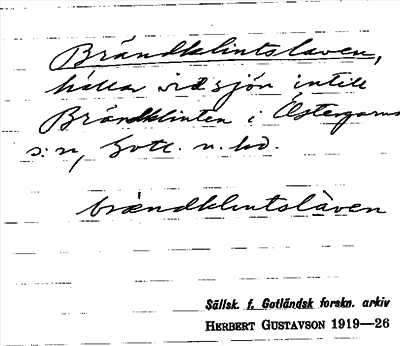 Brändklintslaven,
hålla vid sjön intill
Brändklinten i Östergarns
s:n, Gotl. n. hd.
brændklintslàven
Sällsk. f. Gotländsk forskn. arkiv
HERBERT GUSTAVSON 1919—26